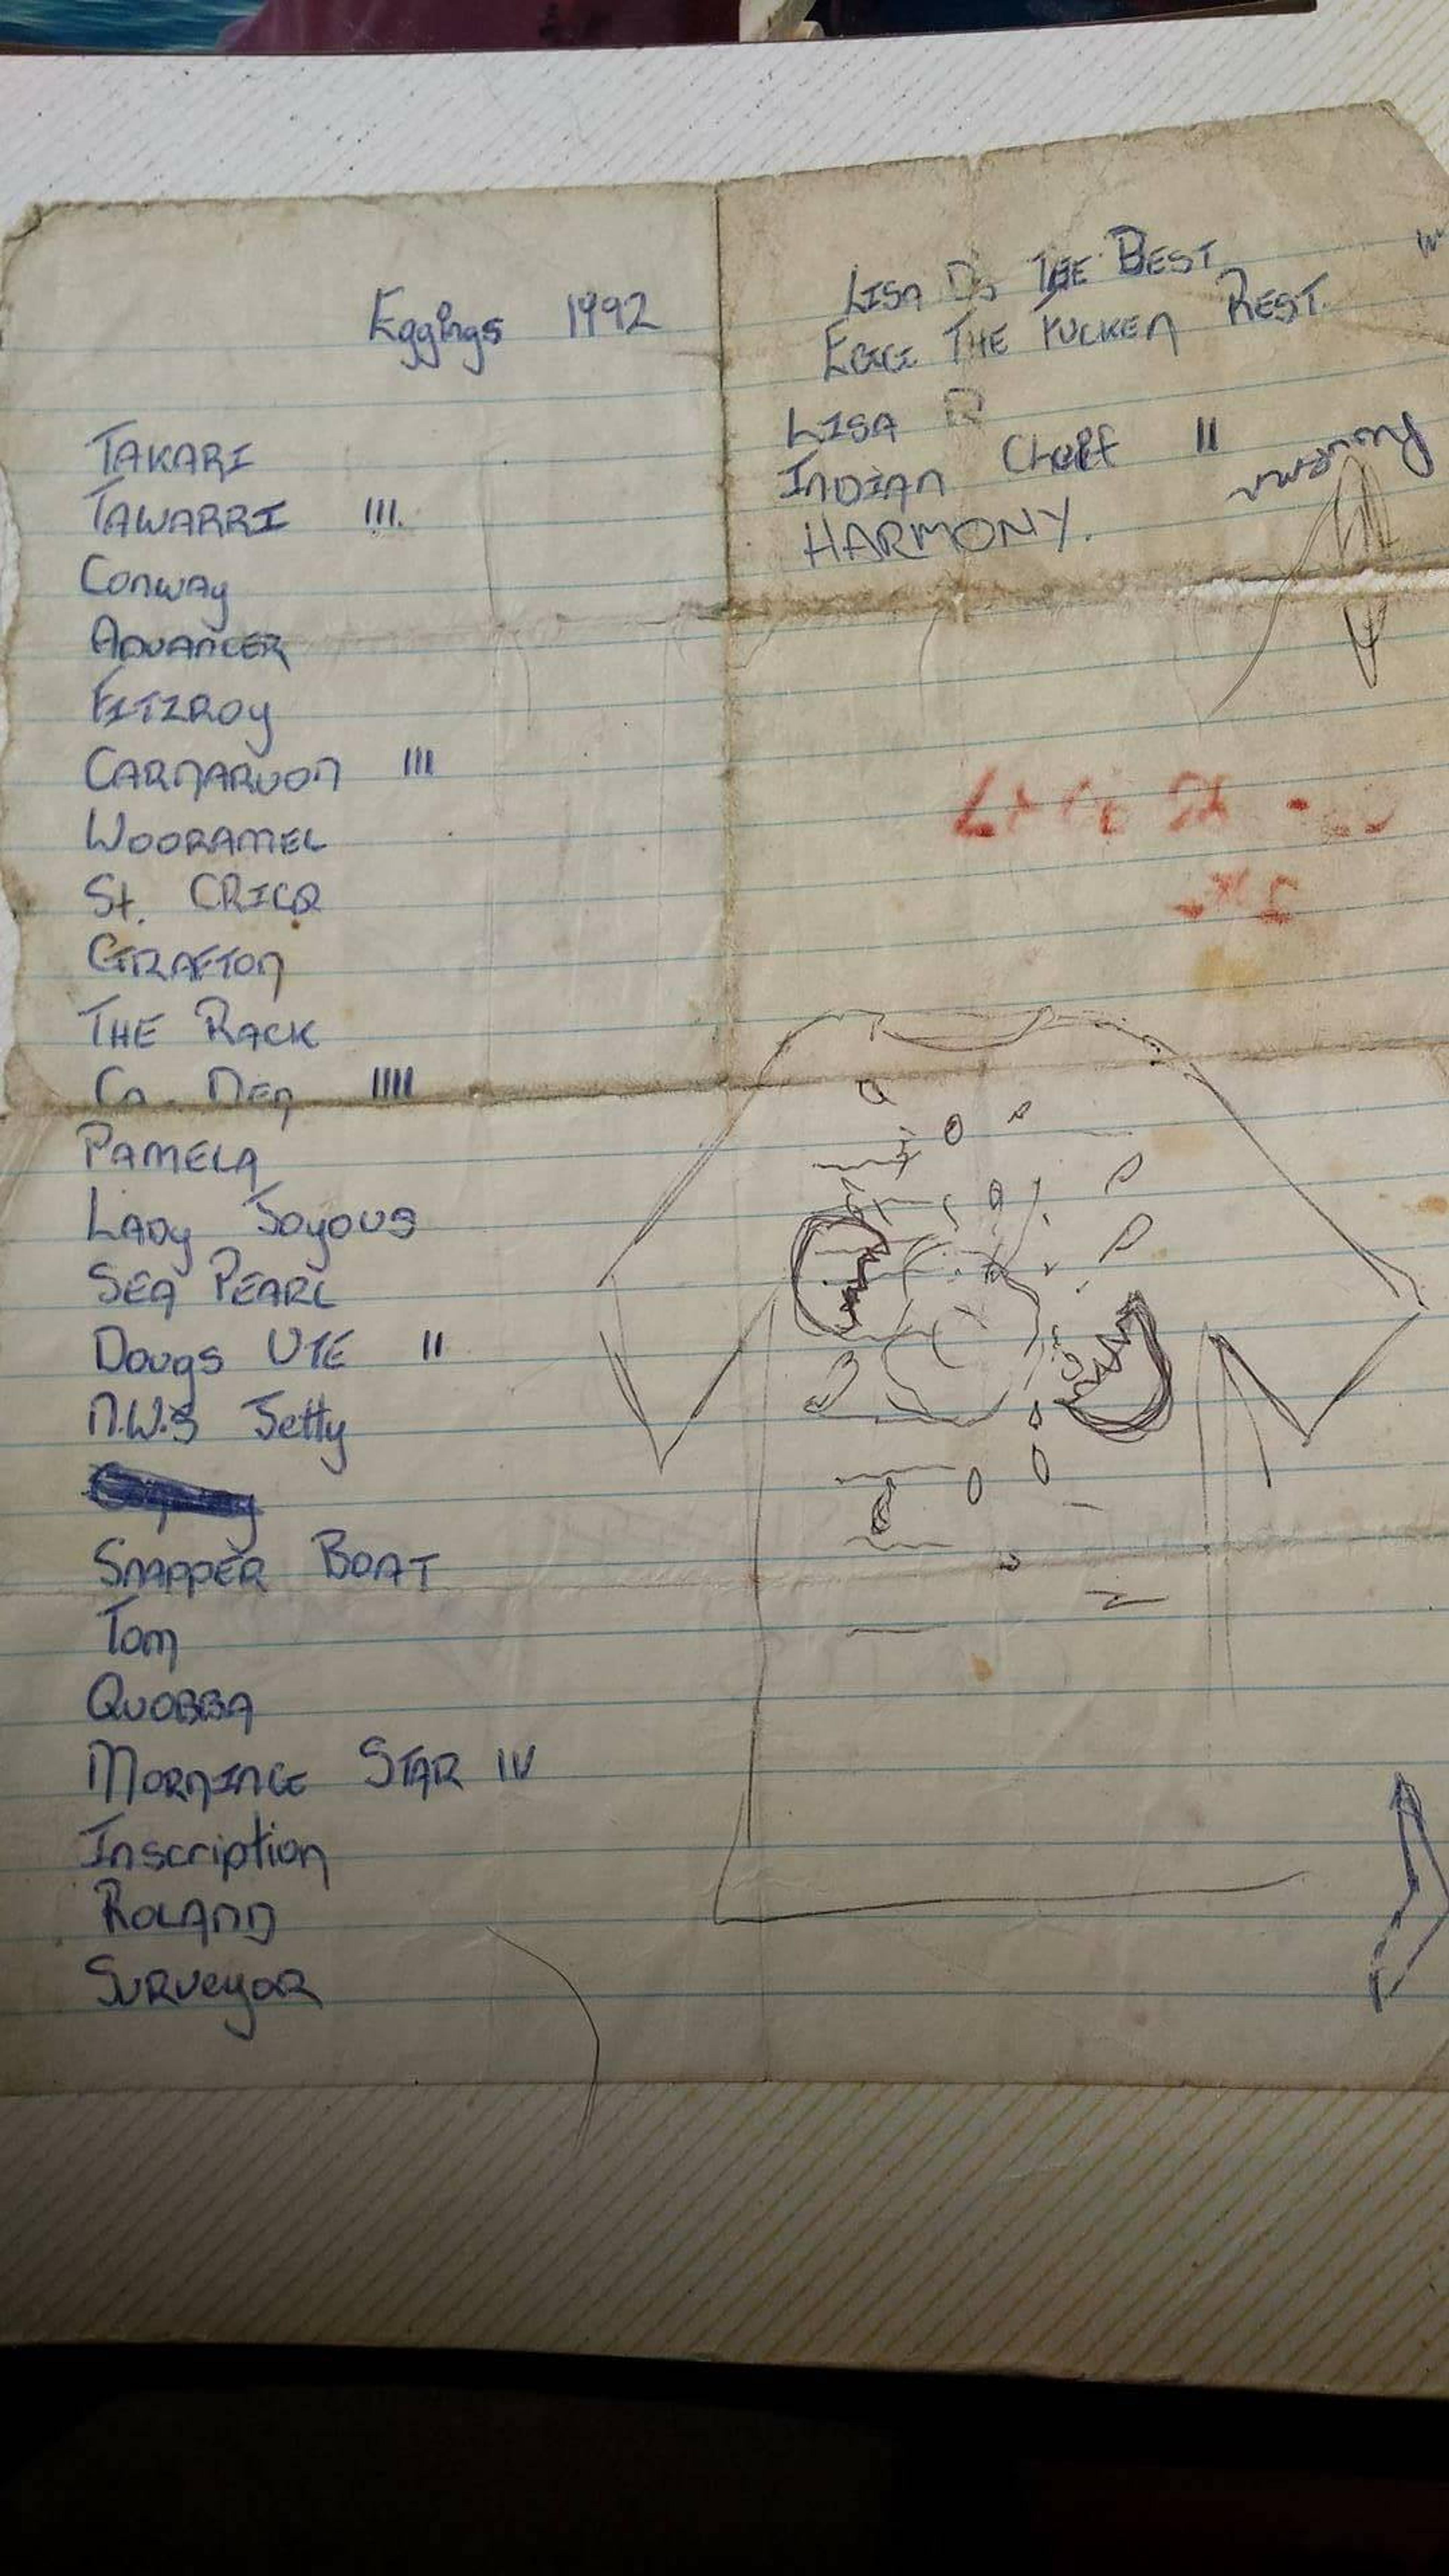 Eggings 1992
TAKARI
TAWARRI III.
Conway
ADVANCER
FITZROY
CARNARVON III
WOORAMEL
St. CRICQ
GRAFTON
THE RACK
IIII
PAMELA
LADY Joyous
SEA PEARL
Dougs UTE II
N.W.S Jetty
SNAPPER BOAT
Tom
QUOBBA
MORNING STAR IV
Inscription
ROLAND
SURVEYOR
LISA D's THE BEST
EGG THE FUCKEN REST.
LISA R
INDIAN II
HARMONY.